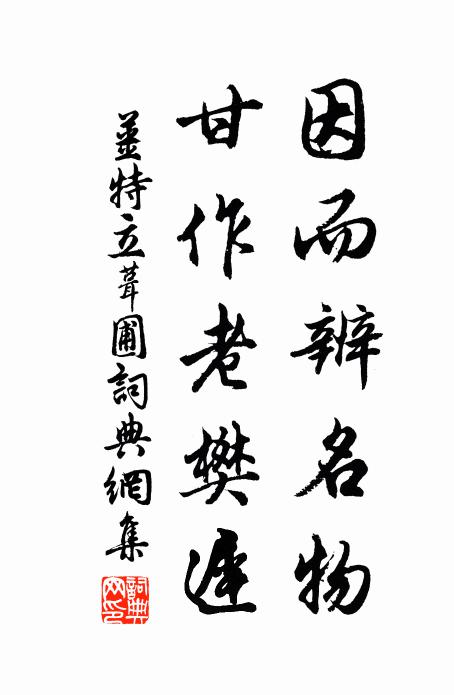 因而辨名物
甘作老樊遲
姜特立葺圃詞典網集
詞典網印